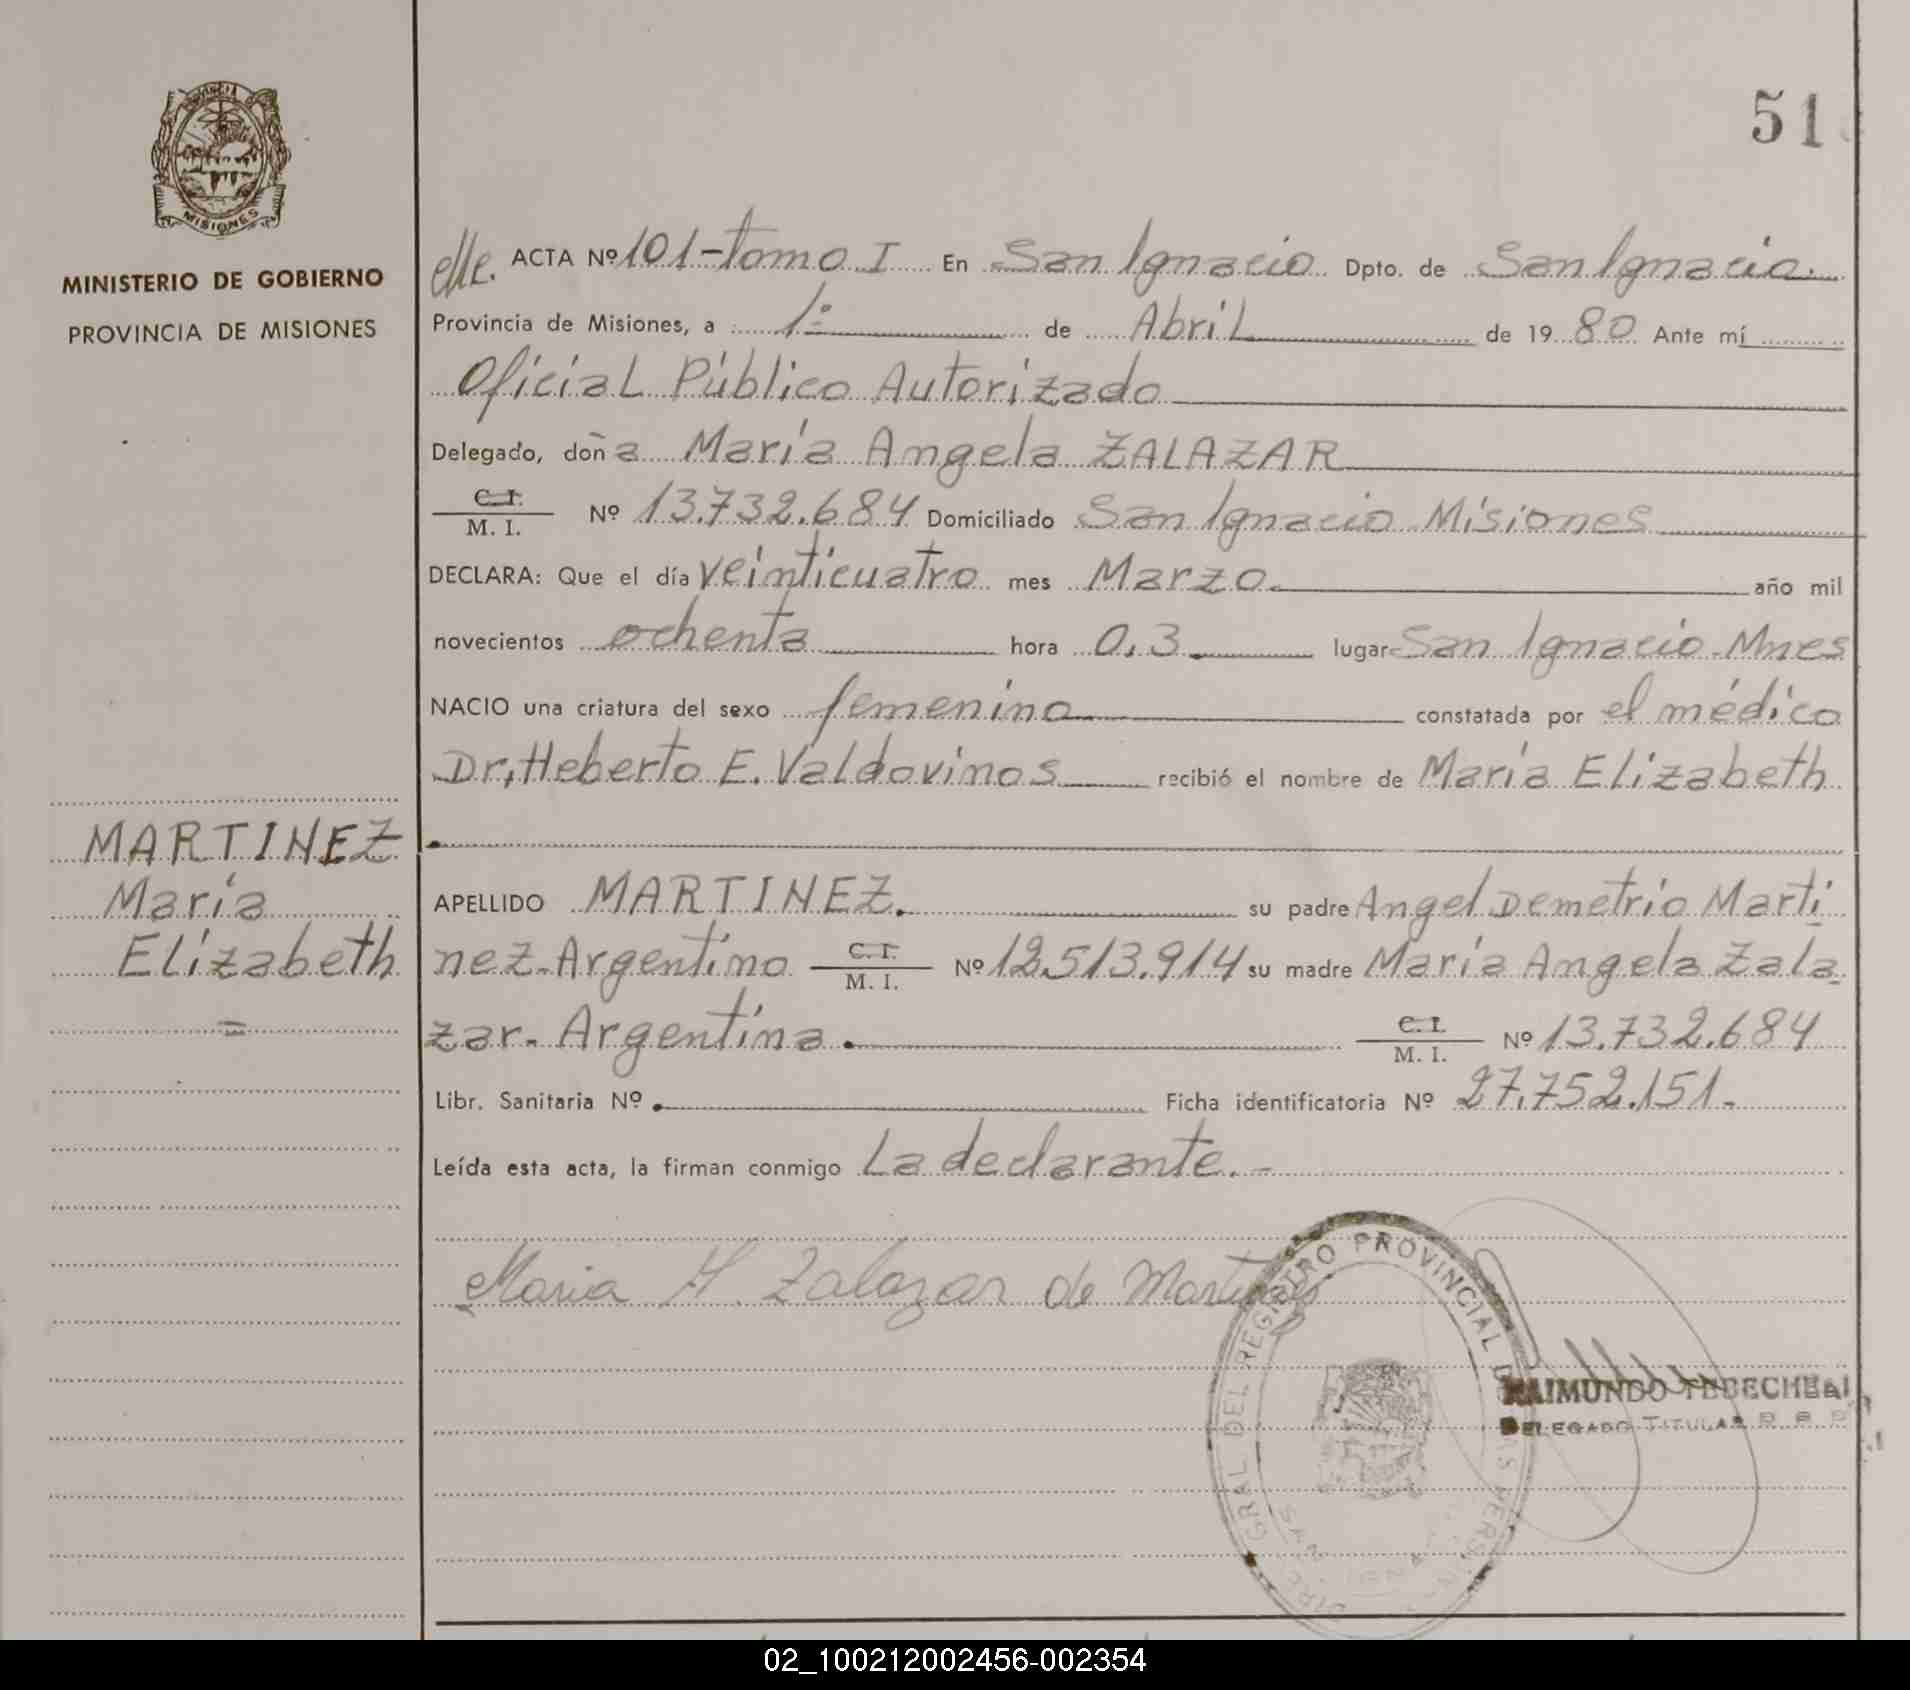 51
MISIONES
MINISTERIO DE GOBIERNO
PROVINCIA DE MISIONES
MARTINEZ
María
Elizabeth
=
ACTA Nº 101-tomo I En San Ignacio Dpto. de San Ignacio.
Provincia de Misiones, a 1º de Abril de 19 80 Ante mí
Oficial Público Autorizado
Delegado, doña María Angela ZALAZAR
C.I.
M. I. Nº 13.732.684 Domiciliado San Ignacio Misiones
DECLARA: Que el día veinticuatro mes Marzo. año mil
novecientos ochenta hora 0.3. lugar San Ignacio-Mnes
NACIO una criatura del sexo femenino constatada por el médico
Dr. Heberto E. Valdovinos recibió el nombre de María Elizabeth
APELLIDO MARTINEZ. su padre Angel Demetrio Marti
nez-Argentino C.I. M. I. Nº 12.513.914 su madre María Angela Zala
zar- Argentina. C.I. M. I. Nº 13.732.684
Libr. Sanitaria Nº . Ficha identificatoria Nº 27.752.151.-
Leída esta acta, la firman conmigo La declarante.-
Maria A. Zalazar de Martinez
GRAL DEL REGISTRO PROVINCIAL
RAIMUNDO
DELEGADO TITULAR
02_100212002456-002354